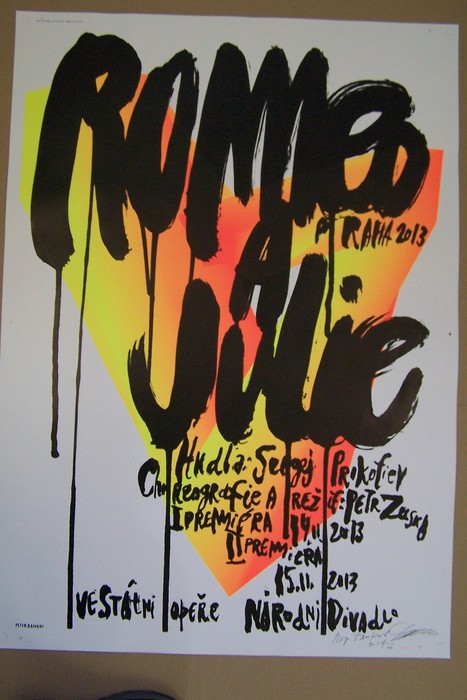 ROMEO
PRAHA 2013
A
Julie
Hudba: Sergej Prokofiev
Choreografie A REŽIE: PETR ZUSKA
I PREMIÉRA 14.11. 2013
II PREMIÉRA
15.11. 2013
VE STÁTNÍ opeře NÁRODNÍ DIVADLO